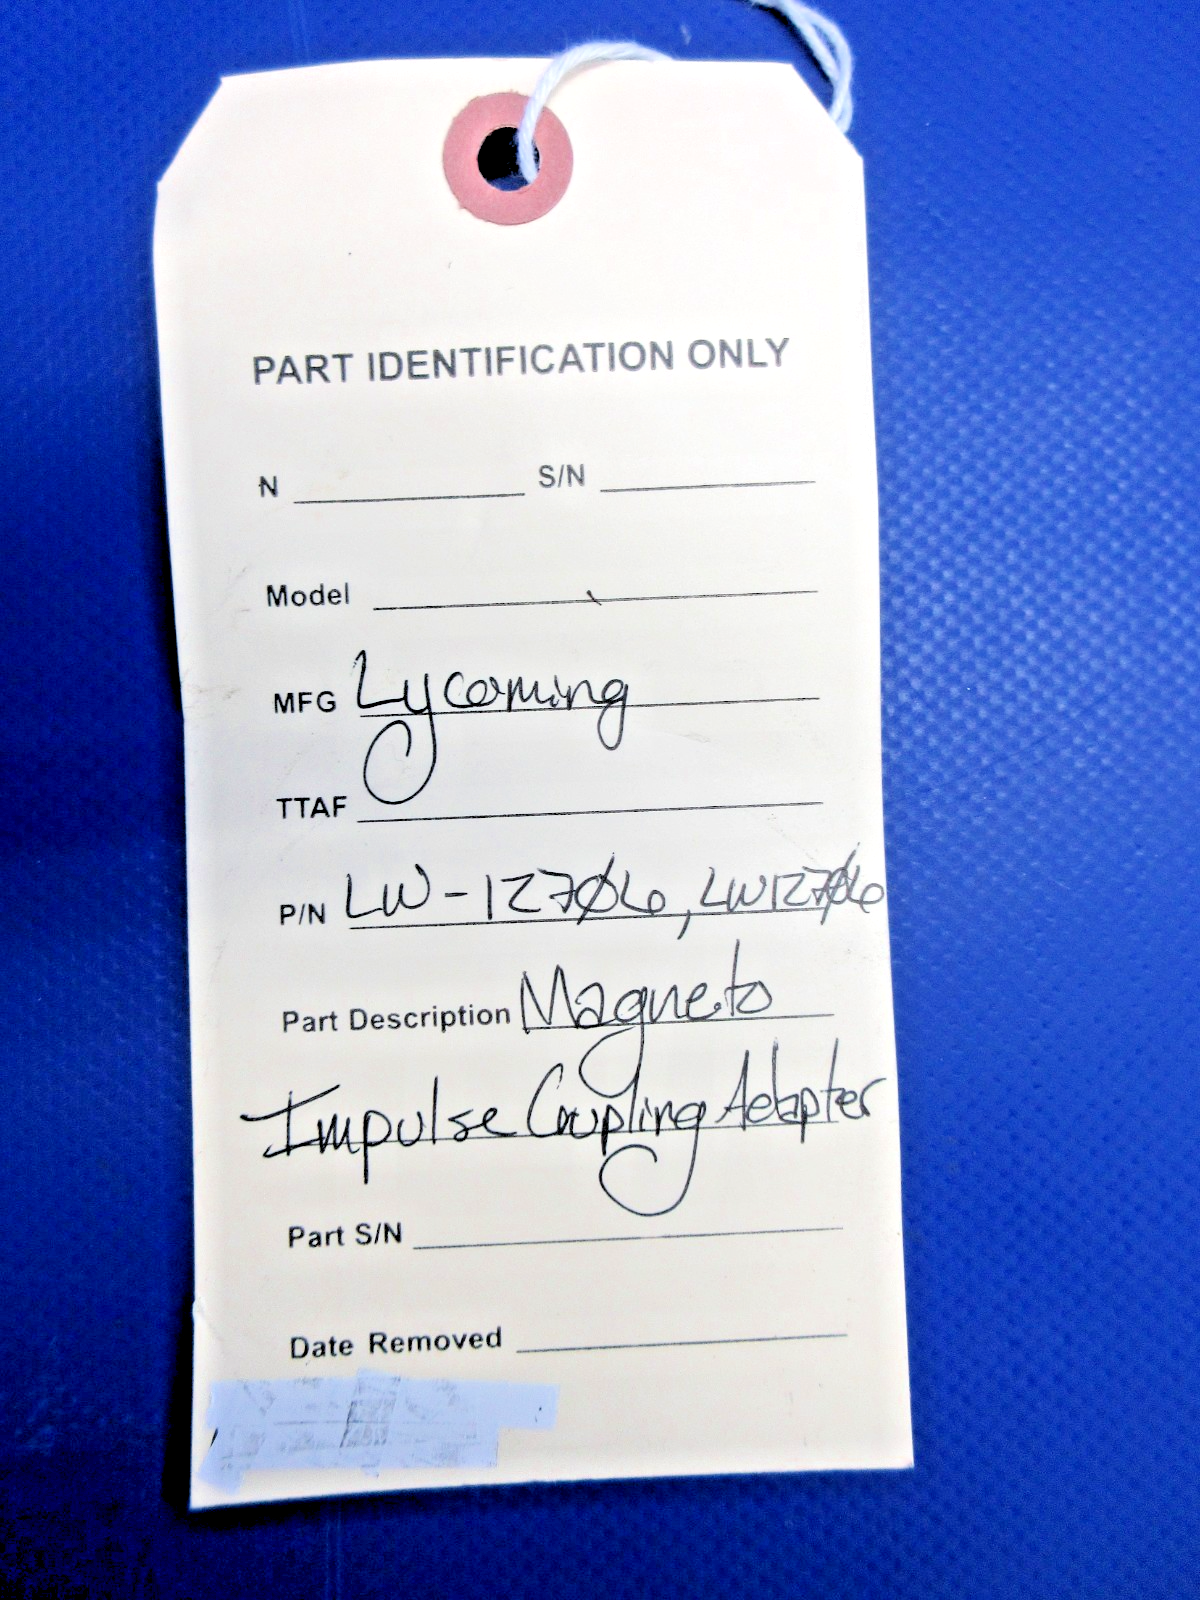 PART IDENTIFICATION ONLY
N S/N
Model
MFG Lycoming
TTAF
P/N LW-12706, LW12706
Part Description Magneto
Impulse Coupling Adapter
Part S/N
Date Removed